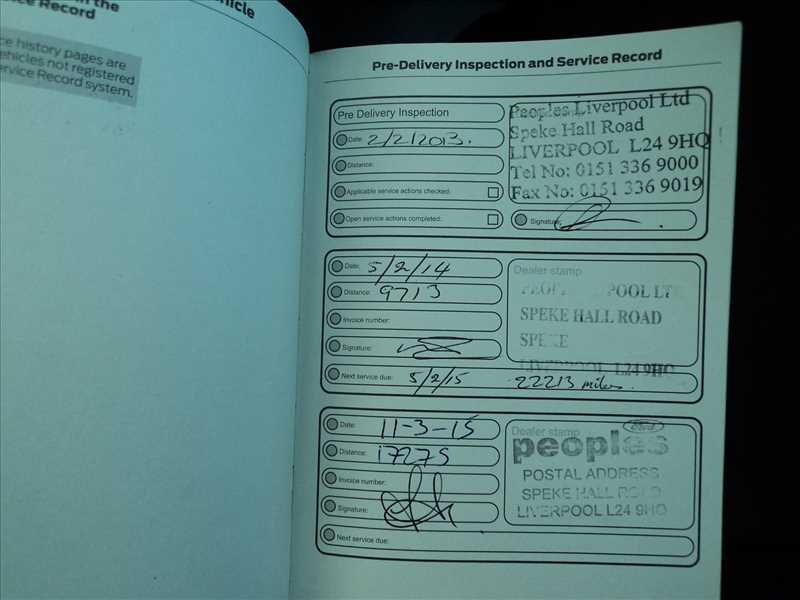 in the
ce Record
hicle
ce history pages are
ehicles not registered
ervice Record system.
Pre-Delivery Inspection and Service Record
Pre Delivery Inspection
Date: 2/2/2013.
Distance:
Applicable service actions checked:
Open service actions completed:
Peoples Liverpool Ltd
Speke Hall Road
LIVERPOOL L24 9HQ
Tel No: 0151 336 9000
Fax No: 0151 336 9019
Signature:
Date: 5/2/14
Distance: 9713
Invoice number:
Signature:
Next service due: 5/2/15 22213 miles.
Dealer stamp
POOL LT
SPEKE HALL ROAD
SPEKE
LIVERPOOL L24 9HQ
Date: 11-3-15
Distance: 17275
Invoice number:
Signature:
Next service due:
Dealer stamp
Ford
peoples
POSTAL ADDRESS
SPEKE HALL ROAD
LIVERPOOL L24 9HQ